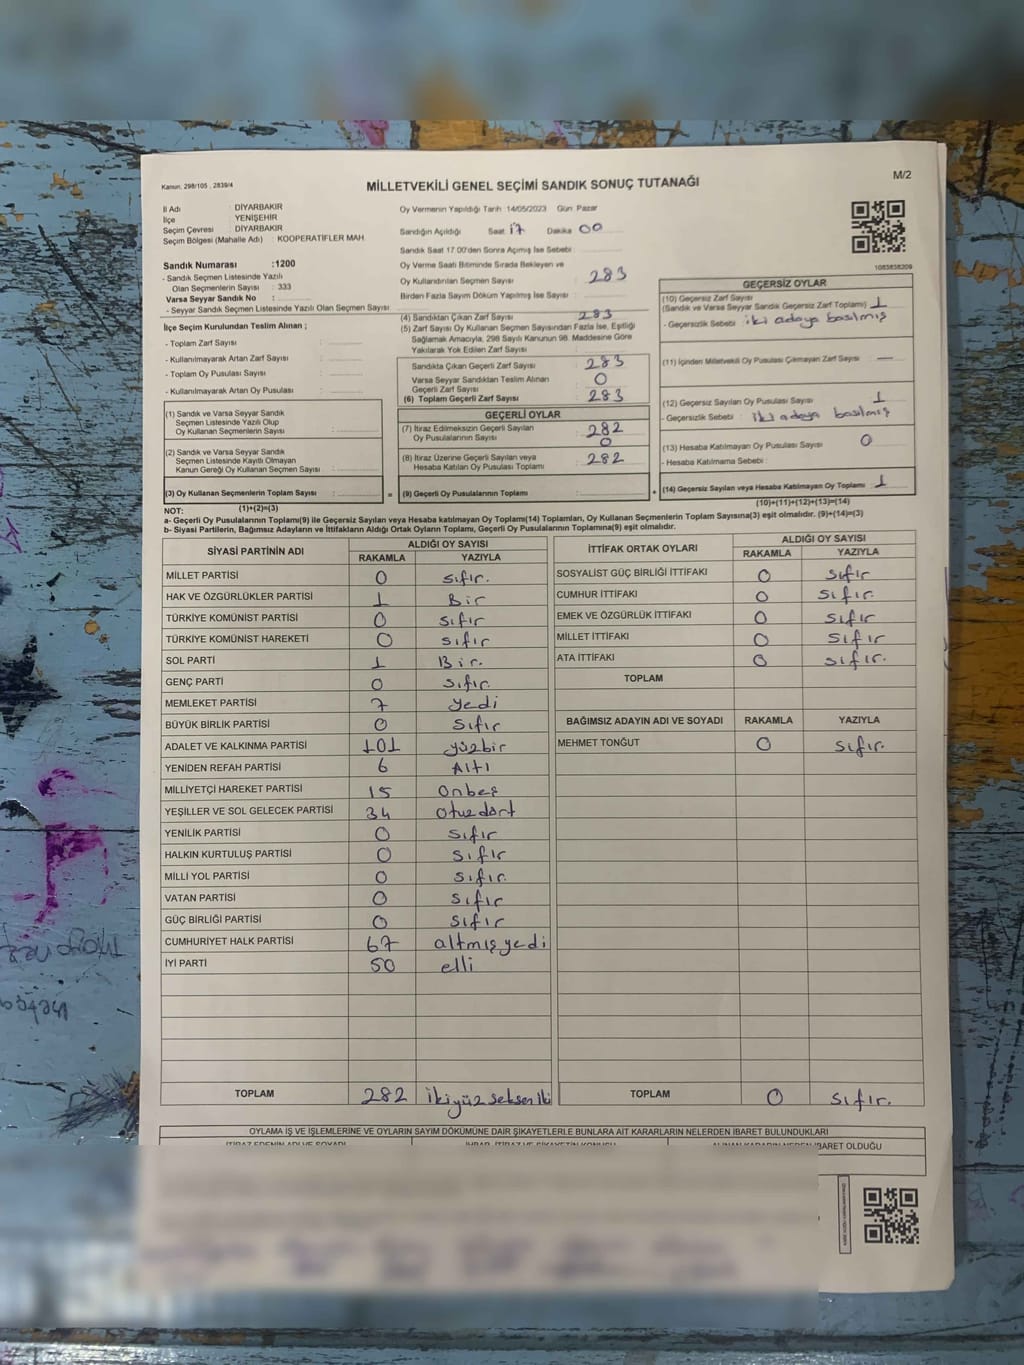 Kanun. 298/105 , 2839/4
MİLLETVEKİLİ GENEL SEÇİMİ SANDIK SONUÇ TUTANAĞI
M/2
İl Adı : DİYARBAKIR
İlçe : YENİŞEHİR
Seçim Çevresi : DİYARBAKIR
Seçim Bölgesi (Mahalle Adı) : KOOPERATİFLER MAH.
Sandık Numarası :1200
- Sandık Seçmen Listesinde Yazılı
Olan Seçmenlerin Sayısı : 333
Varsa Seyyar Sandık No :
- Seyyar Sandık Listesinde Yazılı Olan Seçmen Sayısı :
İlçe Seçim Kurulundan Teslim Alınan ;
- Toplam Zarf Sayısı :
- Kullanılmayarak Artan Zarf Sayısı :
- Toplam Oy Pusulası Sayısı :
- Kullanılmayarak Artan Oy Pusulası :
(1) Sandık ve Varsa Seyyar Sandık
Seçmen Listesinde Yazılı Olup
Oy Kullanan Seçmenlerin Sayısı :
(2) Sandık ve Varsa Seyyar Sandık
Seçmen Listesinde Kayıtlı Olmayan
Kanun Gereği Oy Kullanan Seçmen Sayısı :
(3) Oy Kullanan Seçmenlerin Toplam Sayısı :
Oy Vermenin Yapıldığı Tarih : 14/05/2023 Gün: Pazar
Sandığın Açıldığı Saat 17 Dakika 00
Sandık Saat 17:00'den Sonra Açılmış İse Sebebi :
Oy Verme Saati Bitiminde Sırada Bekleyen ve
Oy Kullandırılan Seçmen Sayısı : 283
Birden Fazla Sayım Döküm Yapılmış İse Sayısı :
(4) Sandıktan Çıkan Zarf Sayısı : 283
(5) Zarf Sayısı Oy Kullanan Seçmen Sayısından Fazla İse, Eşitliği
Sağlamak Amacıyla, 298 Sayılı Kanunun 98. Maddesine Göre
Yakılarak Yok Edilen Zarf Sayısı :
Sandıkta Çıkan Geçerli Zarf Sayısı : 283
Varsa Seyyar Sandıktan Teslim Alınan
Geçerli Zarf Sayısı : 0
(6) Toplam Geçerli Zarf Sayısı : 283
GEÇERLİ OYLAR
(7) İtiraz Edilmeksizin Geçerli Sayılan
Oy Pusulalarının Sayısı : 282
0
(8) İtiraz Üzerine Geçerli Sayılan veya
Hesaba Katılan Oy Pusulası Toplamı : 282
= (9) Geçerli Oy Pusulalarının Toplamı : +
1083838209
GEÇERSİZ OYLAR
(10) Geçersiz Zarf Sayısı
(Sandık ve Varsa Seyyar Sandık Geçersiz Zarf Toplamı) : 1
- Geçersizlik Sebebi : iki adaya basılmış
(11) İçinden Milletvekili Oy Pusulası Çıkmayan Zarf Sayısı : —
(12) Geçersiz Sayılan Oy Pusulası Sayısı : 1
- Geçersizlik Sebebi : iki adaya basılmış
(13) Hesaba Katılmayan Oy Pusulası Sayısı : 0
- Hesaba Katılmama Sebebi :
(14) Geçersiz Sayılan veya Hesaba Katılmayan Oy Toplamı : 1
NOT: (1)+(2)=(3) (10)+(11)+(12)+(13)=(14)
a- Geçerli Oy Pusulalarının Toplamı(9) ile Geçersiz Sayılan veya Hesaba katılmayan Oy Toplamı(14) Toplamları, Oy Kullanan Seçmenlerin Toplam Sayısına(3) eşit olmalıdır. (9)+(14)=(3)
b- Siyasi Partilerin, Bağımsız Adayların ve İttifakların Aldığı Ortak Oyların Toplamı, Geçerli Oy Pusulalarının Toplamına(9) eşit olmalıdır.
SİYASİ PARTİNİN ADI ALDIĞI OY SAYISI
RAKAMLA YAZIYLA
MİLLET PARTİSİ 0 sıfır.
HAK VE ÖZGÜRLÜKLER PARTİSİ 1 Bir
TÜRKİYE KOMÜNİST PARTİSİ 0 sıfır
TÜRKİYE KOMÜNİST HAREKETİ 0 sıfır
SOL PARTİ 1 Bir.
GENÇ PARTİ 0 sıfır.
MEMLEKET PARTİSİ 7 yedi
BÜYÜK BİRLİK PARTİSİ 0 sıfır
ADALET VE KALKINMA PARTİSİ 101 yüzbir
YENİDEN REFAH PARTİSİ 6 Altı
MİLLİYETÇİ HAREKET PARTİSİ 15 onbeş
YEŞİLLER VE SOL GELECEK PARTİSİ 34 otuzdört
YENİLİK PARTİSİ 0 sıfır
HALKIN KURTULUŞ PARTİSİ 0 sıfır
MİLLİ YOL PARTİSİ 0 sıfır.
VATAN PARTİSİ 0 sıfır
GÜÇ BİRLİĞİ PARTİSİ 0 sıfır
CUMHURİYET HALK PARTİSİ 67 altmışyedi
İYİ PARTİ 50 elli
TOPLAM 282 ikiyüz seksen iki
İTTİFAK ORTAK OYLARI ALDIĞI OY SAYISI
RAKAMLA YAZIYLA
SOSYALİST GÜÇ BİRLİĞİ İTTİFAKI 0 sıfır
CUMHUR İTTİFAKI 0 sıfır.
EMEK VE ÖZGÜRLÜK İTTİFAKI 0 sıfır
MİLLET İTTİFAKI 0 sıfır
ATA İTTİFAKI 0 sıfır.
TOPLAM
BAĞIMSIZ ADAYIN ADI VE SOYADI RAKAMLA YAZIYLA
MEHMET TONĞUT 0 sıfır.
TOPLAM 0 sıfır.
OYLAMA İŞ VE İŞLEMLERİNE VE OYLARIN SAYIM DÖKÜMÜNE DAİR ŞİKAYETLERLE BUNLARA AİT KARARLARIN NELERDEN İBARET BULUNDUKLARI
İTİRAZ EDENİN ADI VE SOYADI İHBAR, İTİRAZ VE ŞİKAYETİN KONUSU ALINAN KARARIN NEDEN İBARET OLDUĞU